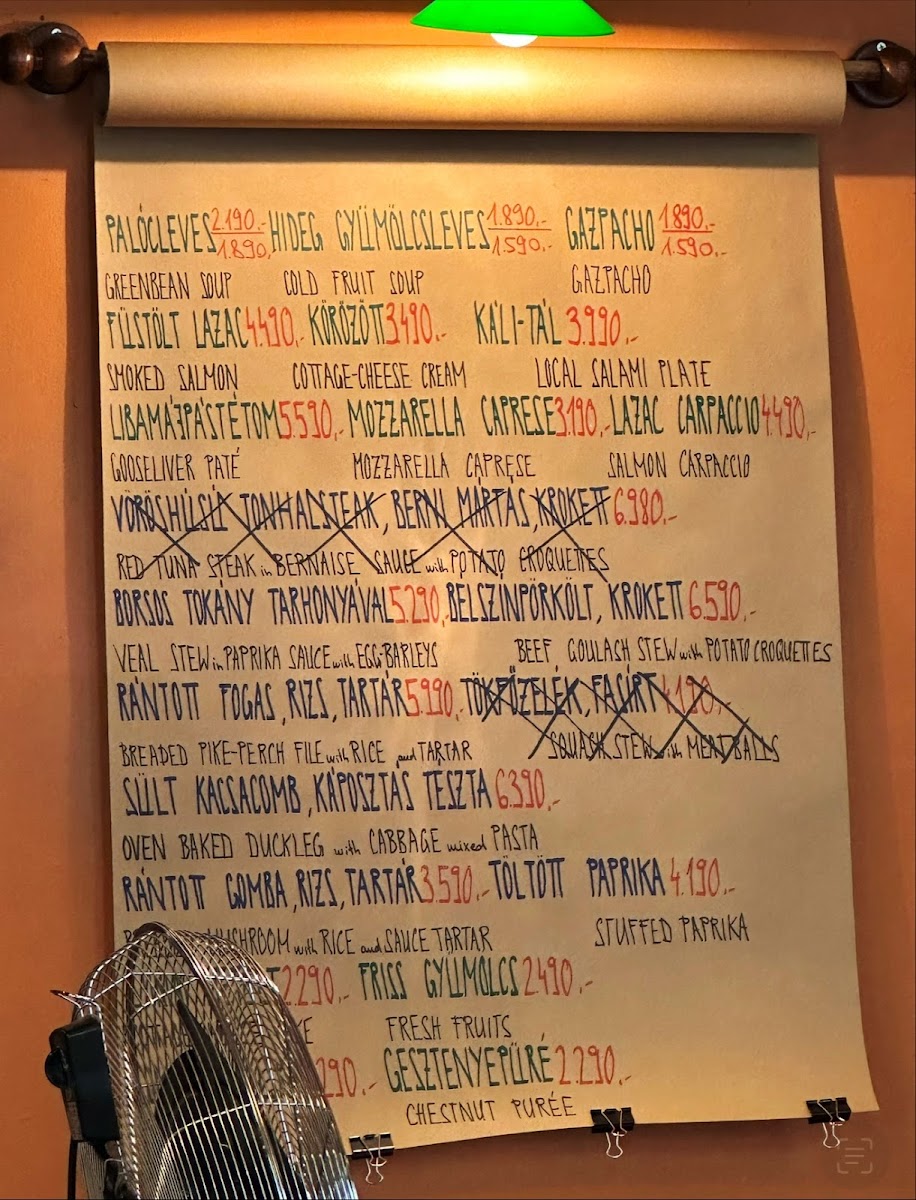 PALÓCLEVES 2.190.- / 1.890.- HIDEG GYÜMÖLCSLEVES 1.890.- / 1.590.- GAZPACHO 1.890.- / 1.590.-
GREENBEAN SOUP COLD FRUIT SOUP GAZPACHO
FÜSTÖLT LAZAC 4.490.- KÖRÖZÖTT 3490.- KÁLI-TÁL 3.990.-
SMOKED SALMON COTTAGE-CHEESE CREAM LOCAL SALAMI PLATE
LIBAMÁJPÁSTÉTOM 5.590.- MOZZARELLA CAPRESE 3.190.- LAZAC CARPACCIO 4.490.-
GOOSELIVER PATÉ MOZZARELLA CAPRESE SALMON CARPACCIO
VÖRÖSHÚSÚ TONHALSTEAK, BERNI MÁRTÁS, KROKETT 6.980.-
RED TUNA STEAK in BERNAISE SAUCE with POTATO CROQUETTES
BORSOS TOKÁNY TARHONYÁVAL 5.290.- BELSZÍNPÖRKÖLT, KROKETT 6.590.-
VEAL STEW in PAPRIKA SAUCE with EGG-BARLEYS BEEF GOULASH STEW with POTATO CROQUETTES
RÁNTOTT FOGAS, RIZS, TARTÁR 5.990.- TÖKFŐZELÉK, FASÍRT 4.190.-
BREADED PIKE-PERCH FILE with RICE and TARTAR SQUASH STEW with MEATBALLS
SÜLT KACSACOMB, KÁPOSZTÁS TÉSZTA 6.390.-
OVEN BAKED DUCKLEG with CABBAGE mixed PASTA
RÁNTOTT GOMBA, RIZS, TARTÁR 3.590.- TÖLTÖTT PAPRIKA 4.190.-
MUSHROOM with RICE and SAUCE TARTAR STUFFED PAPRIKA
2.290.- FRISS GYÜMÖLCS 2.490.-
FRESH FRUITS
290.- GESZTENYEPÜRÉ 2.290.-
CHESTNUT PURÉE